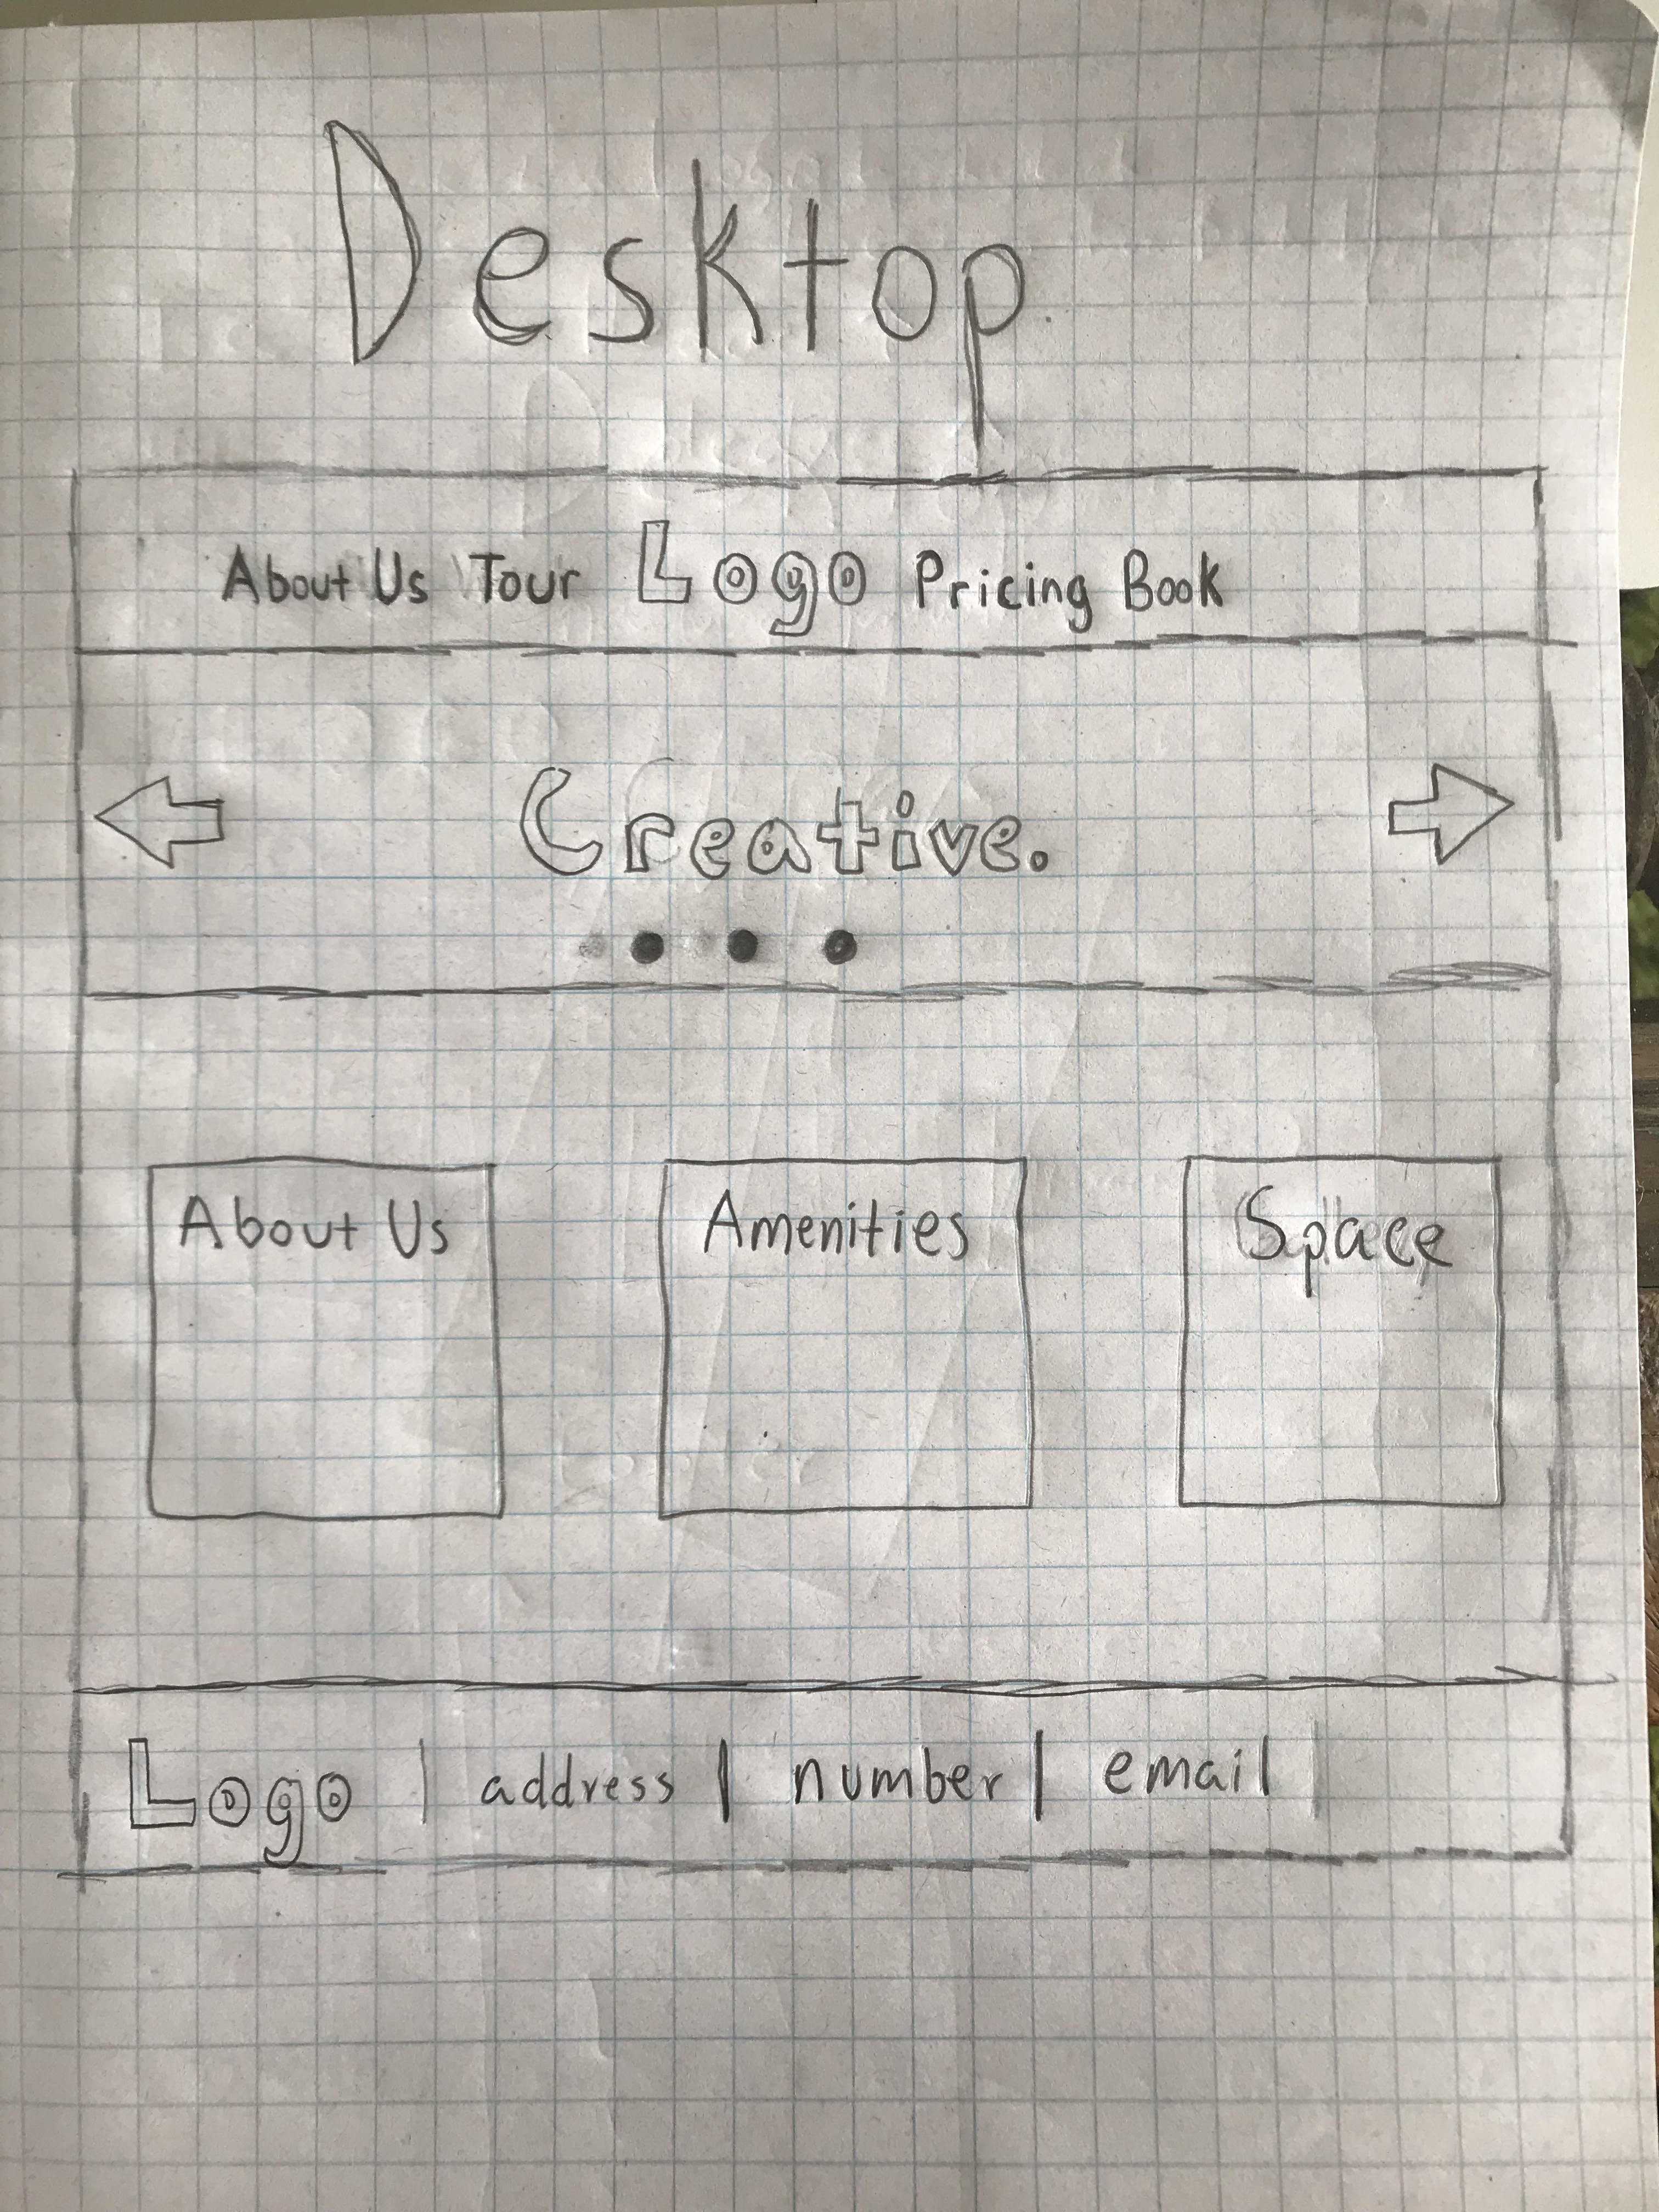 Desktop
About Us Tour Logo Pricing Book
Creative.
About Us Amenities Space
Logo | address | number | email |